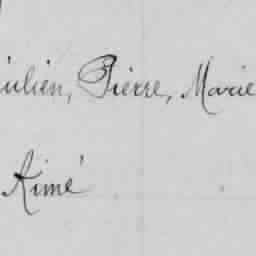 ulien, Pierre, Marie
Aimé